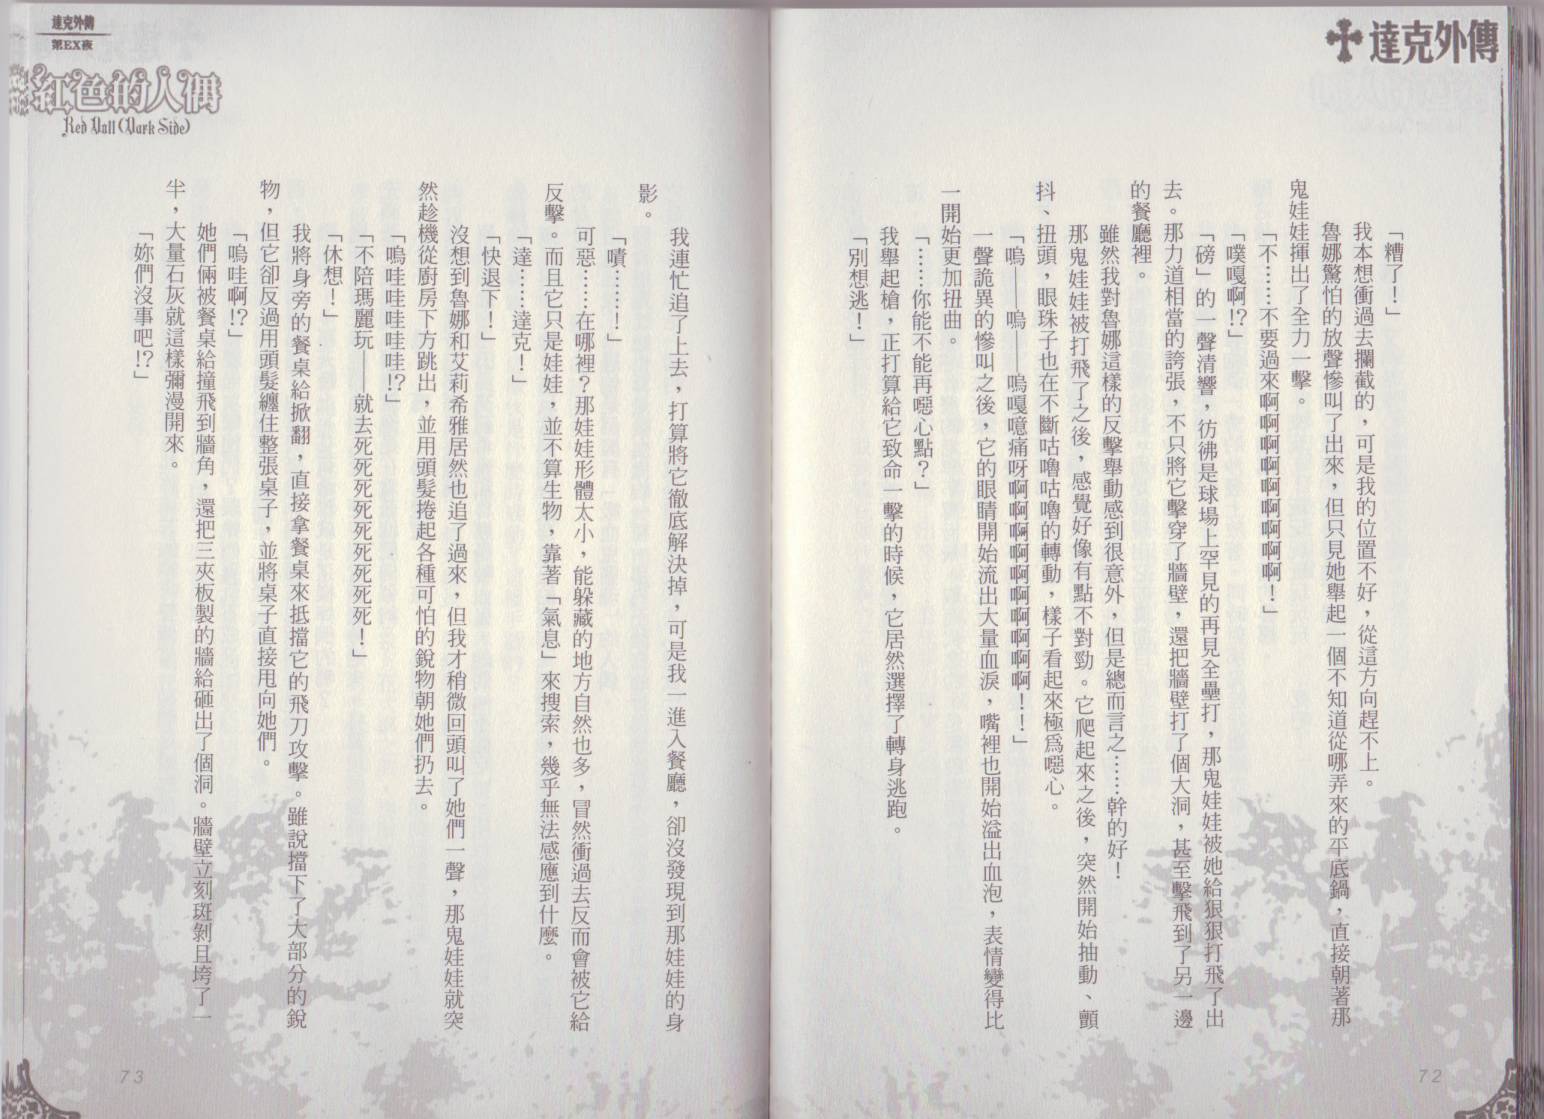 達克外傳
「糟了！」
我本想衝過去攔截的，可是我的位置不好，從這方向趕不上。
魯娜驚怕的放聲慘叫了出來，但只見她舉起一個不知道從哪弄來的平底鍋，直接朝著那
鬼娃娃揮出了全力一擊。
「不……不要過來啊啊啊啊啊啊啊啊啊！」
「噗嘎啊!?」
「磅」的一聲清響，彷彿是球場上罕見的再見全壘打，那鬼娃娃被她給狠狠打飛了出
去。那力道相當的誇張，不只將它擊穿了牆壁，還把牆壁打了個大洞，甚至擊飛到了另一邊
的餐廳裡。
雖然我對魯娜這樣的反擊舉動感到很意外，但是總而言之……幹的好！
那鬼娃娃被打飛了之後，感覺好像有點不對勁。它爬起來之後，突然開始抽動、顫
抖、扭頭，眼珠子也在不斷咕嚕咕嚕的轉動，樣子看起來極爲噁心。
「嗚——嗚——嗚嘎噫痛呀啊啊啊啊啊啊啊啊啊！！」
一聲詭異的慘叫之後，它的眼睛開始流出大量血淚，嘴裡也開始溢出血泡，表情變得比
一開始更加扭曲。
「……你能不能再噁心點？」
我舉起槍，正打算給它致命一擊的時候，它居然選擇了轉身逃跑。
「別想逃！」
72
達克外傳
第EX夜
紅色的人偶
Red Doll (Dark Side)
我連忙追了上去，打算將它徹底解決掉，可是我一進入餐廳，卻沒發現到那娃娃的身
影。
「嘖……！」
可惡……在哪裡？那娃娃形體太小，能躲藏的地方自然也多，冒然衝過去反而會被它給
反擊。而且它只是娃娃，並不算生物，靠著「氣息」來搜索，幾乎無法感應到什麼。
「達……達克！」
「快退下！」
沒想到魯娜和艾莉希雅居然也追了過來，但我才稍微回頭叫了她們一聲，那鬼娃娃就突
然趁機從廚房下方跳出，並用頭髮捲起各種可怕的銳物朝她們扔去。
「嗚哇哇哇哇哇!?」
「不陪瑪麗玩——就去死死死死死死死死死！」
「休想！」
我將身旁的餐桌給掀翻，直接拿餐桌來抵擋它的飛刀攻擊。雖說擋下了大部分的銳
物，但它卻反過用頭髮纏住整張桌子，並將桌子直接甩向她們。
「嗚哇啊!?」
她們倆被餐桌給撞飛到牆角，還把三夾板製的牆給砸出了個洞。牆壁立刻斑剝且垮了一
半，大量石灰就這樣彌漫開來。
「妳們沒事吧!?」
73